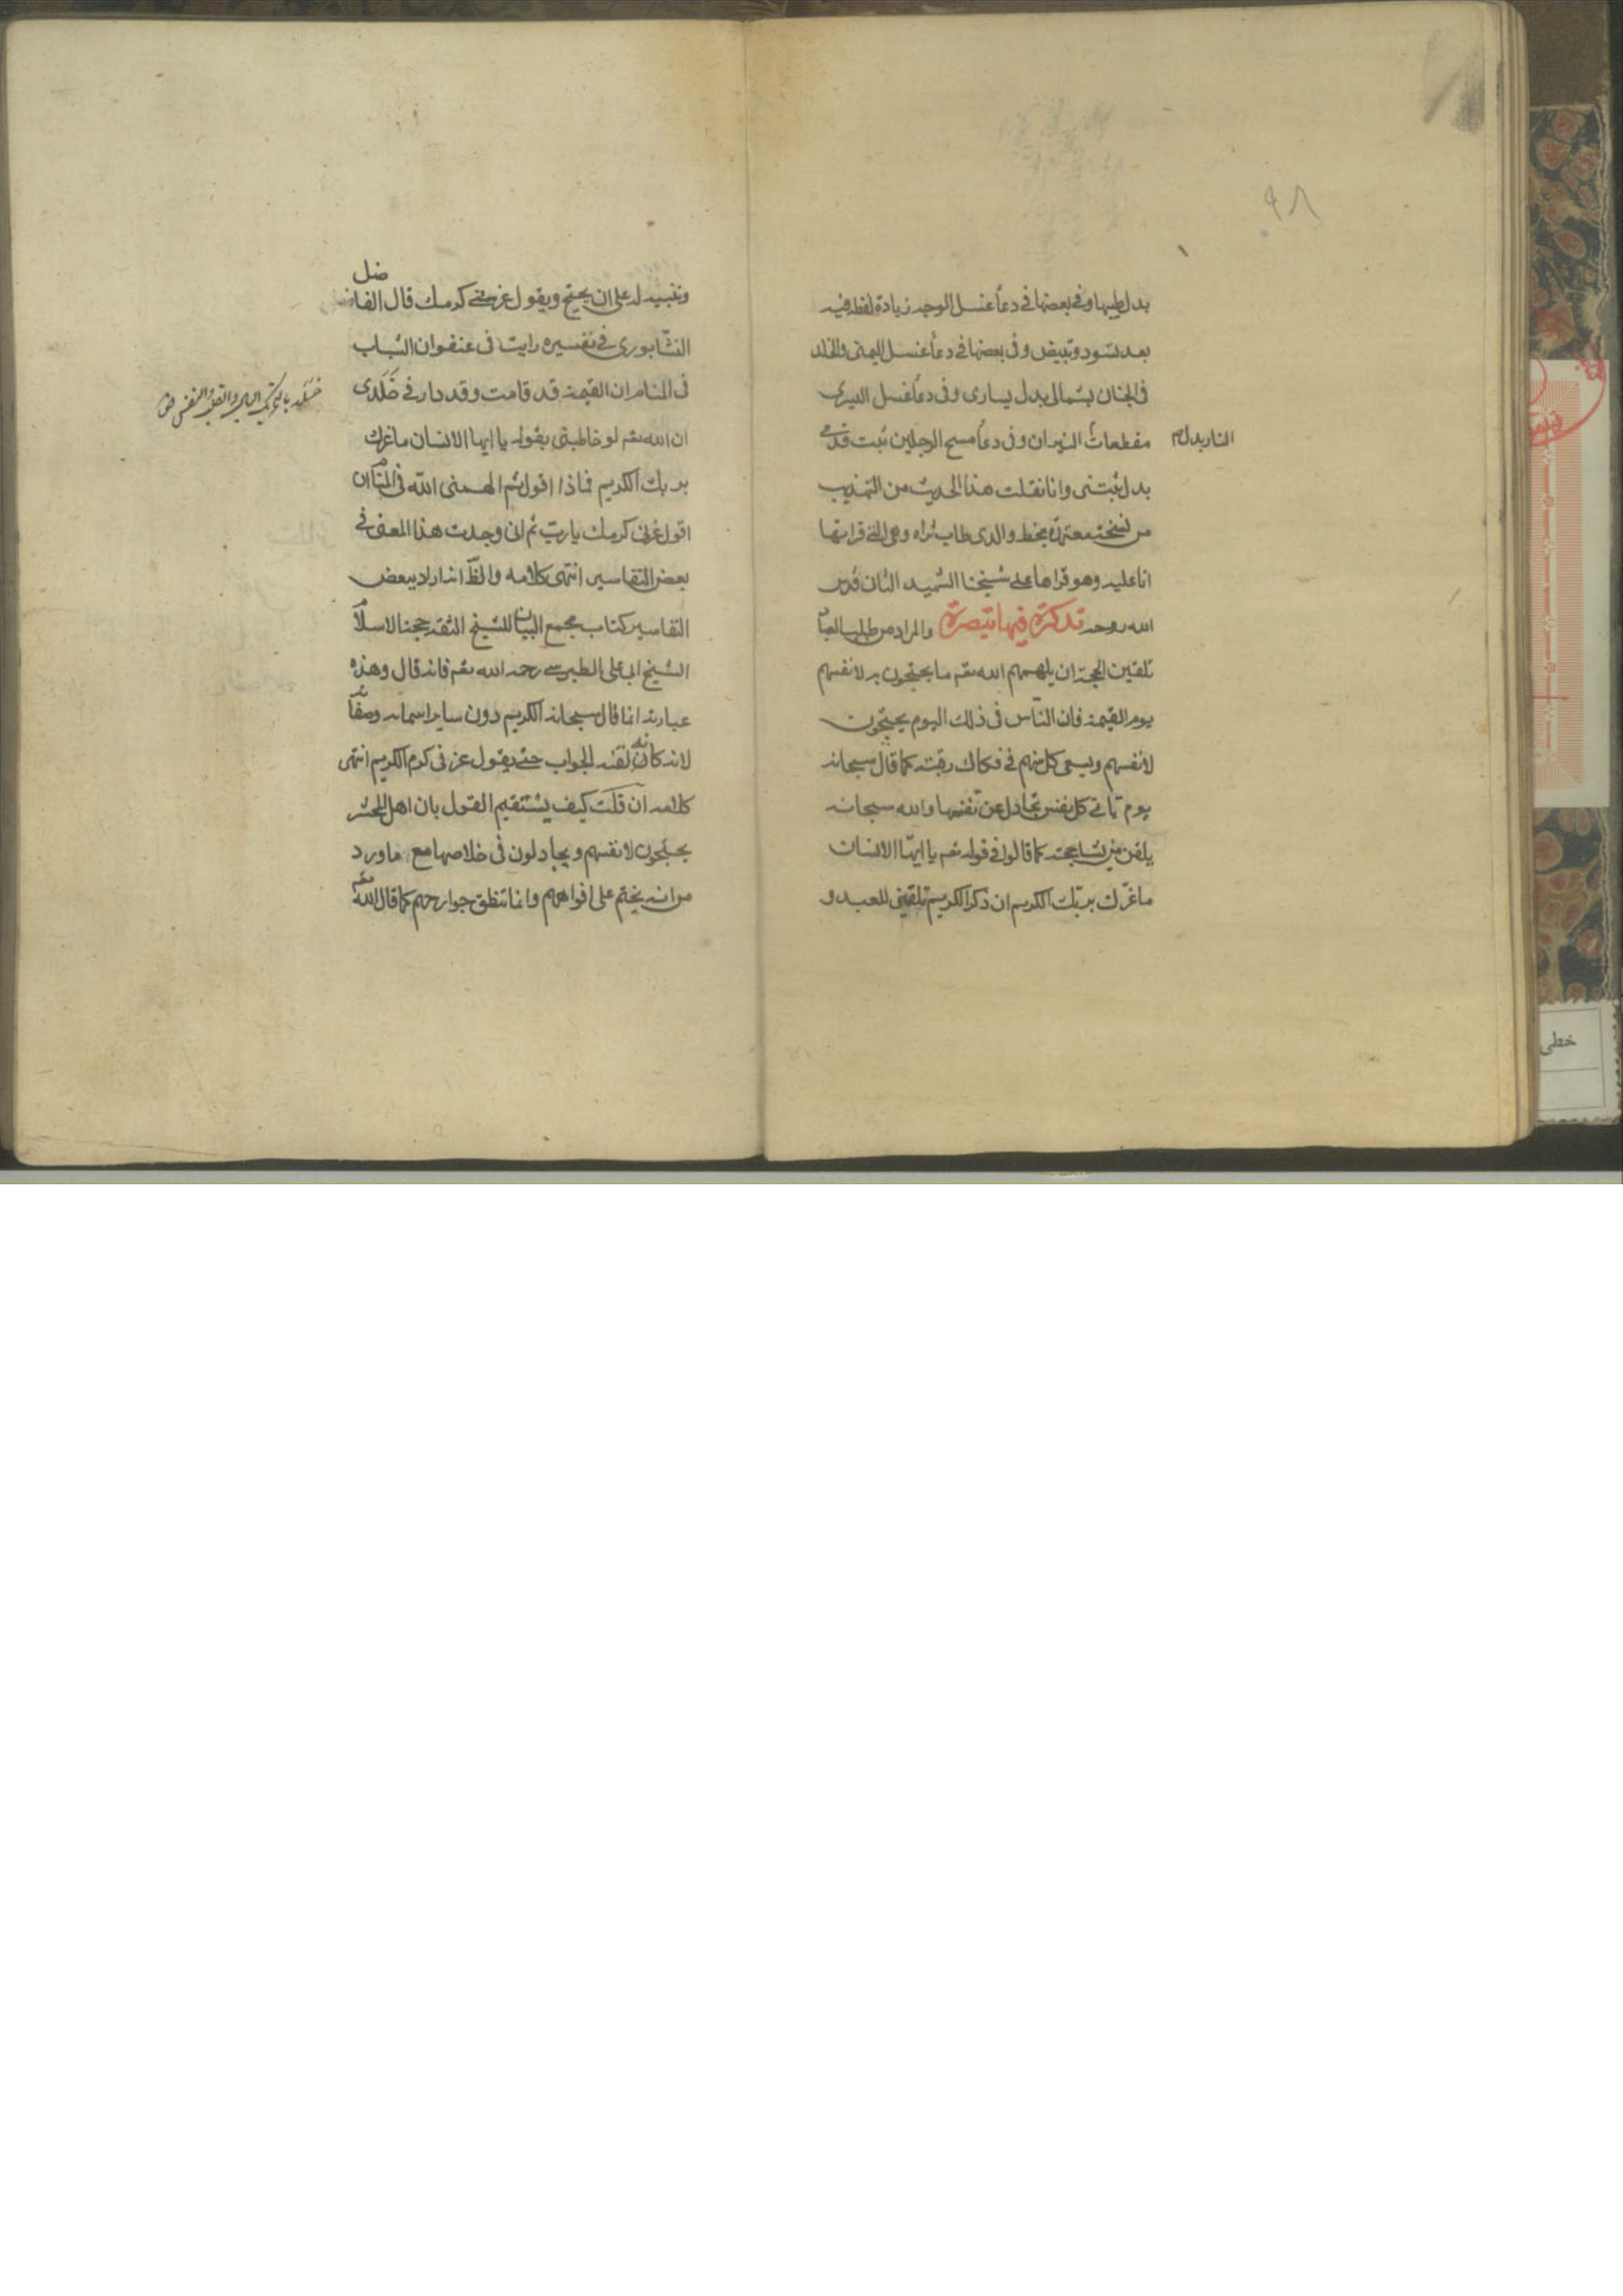 ٩٨
بدل طيبها وفي بعضها في دعآ غسل الوجه زيادة لفظ فيه
بعد تسود وتبيض وفي بعضها في دعآ غسل اليمنى والخلد
في الجنان بشمالي بدل يساري وفي دعآ غسل اليسرى
النار بدل مقطعات النيران وفي دعآ مسح الرجلين ثبت قدمي
بدل ثبتني وانا نقلت هذا الحديث من التهذيب
من نسخة معتمدة بخط والدي طاب ثراه وهي التي قراتها
انا عليه وهو قراها على شيخنا الشهيد الثاني قدس
الله روحه تذكرة فيها تبصرة والمراد من طلب العباد
تلقين الحجة ان يلهمهم الله تعم ما يحتجون به لانفسهم
يوم القيمة فان النّاس في ذلك اليوم يحتجون
لانفسهم ويسعى كل منهم في فكاك رقبته كما قال سبحانه
يوم تاتي كل نفس تجادل عن نفسها والله سبحانه
يلقن من يشآ حجته كما قالوا في قوله تعم يا ايّها الانسان
ما غرّك بربّك الكريم ان ذكر الكريم تلقين للعبد و
وتنبيه له على ان يحتج ويقول غرني كرمك قال الفاضل
النشابوري في تفسيره رايت في عنفوان الشباب
في المنام ان القيمة قد قامت وقد دار في خَلَدي
ان الله تعم لو خاطبني بقوله يا ايها الانسان ما غرك
بربك الكريم فماذا اقول ثم الهمني الله في المنام ان
اقول غرني كرمك يا ربّ ثم اني وجدت هذا المعنى في
بعض التفاسير انتهى كلامه والظّ انه اراد ببعض
التفاسير كتاب مجمع البيان للشيخ الثقة حجة الاسلام
الشيخ ابا على الطبرسي رحمه الله تعم فانه قال وهذه
عبارته انما قال سبحانه الكريم دون ساير اسمائه وصفاته
لانه كانه لقنه الجواب حتى يقول غرني كرم الكريم انتهى
كلامه ان قلت كيف يستقيم القول بان اهل المحشر
يحتجون لانفسهم ويجادلون في خلاصها مع ما ورد
من انه يختم على افواههم وانما تنطق جوارحهم كما قال الله تعم
خلد بالتحريك البال والقلب والنفس
خطی